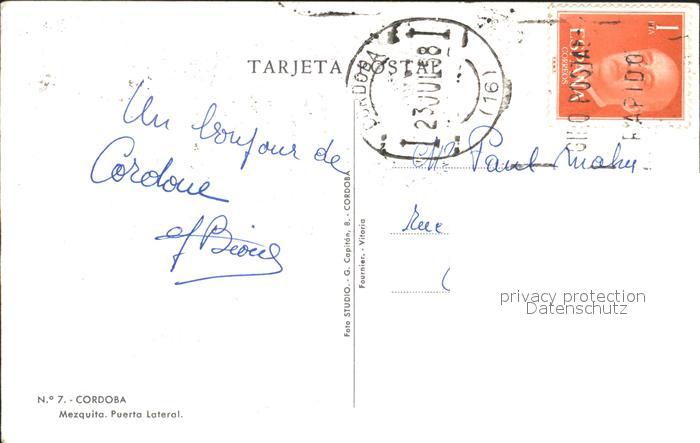 TARJETA POSTAL
CORDOBA
23 JUL 68
(16)
1
PTA
ESPAÑA
CORREOS
GIRO POSTAL
RAPIDO
Un bonjour de
Cordoue
Paul
Rue
privacy protection
Datenschutz
Foto STUDIO. - G. Capitán, 8. - CORDOBA
Fournier. - Vitoria
N.º 7. - CORDOBA
Mezquita. Puerta Lateral.